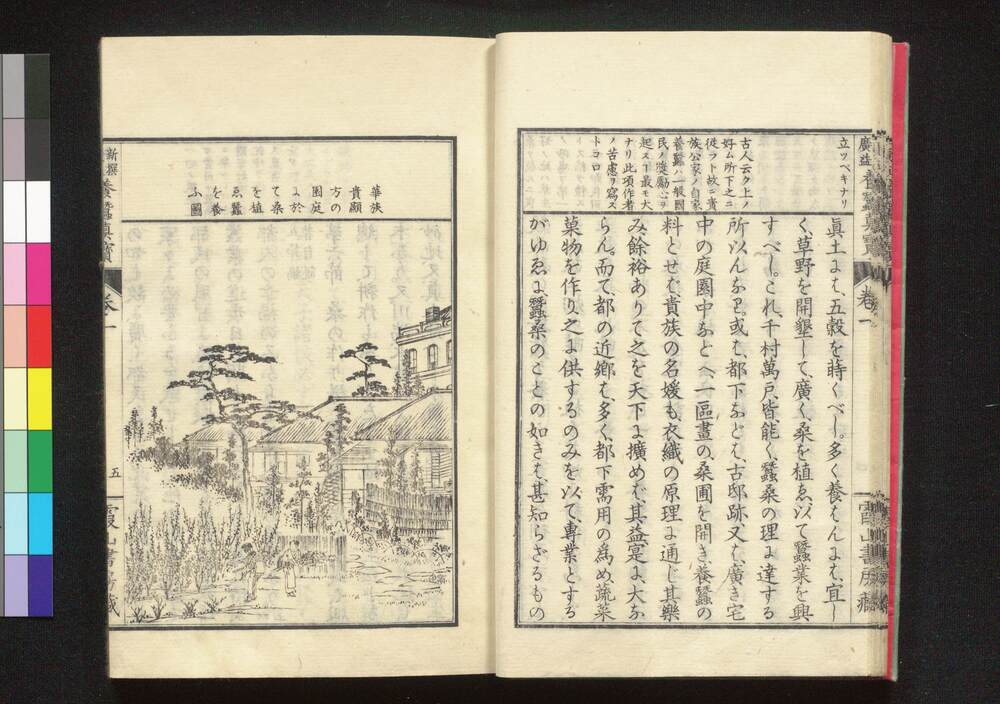 立ツベキナリ
古人云ク上ノ
好ム所下之ニ
從フト故ニ貴
族公家ノ自家
養蠶ハ一般國
民ノ獎勵心ヲ
起スコ最モ大
ナリ此項作者
ノ苦慮ヲ寫ス
トコロ
眞土には、五穀を蒔くべし。多く養はんには、宜し
く、草野を開墾して、廣く、桑を植ゑ、以て蠶業を興
すべし。これ、千村萬戸皆能く、蠶桑の理に達する
所以んなり。或は、都下などは、古邸跡、又は、廣き宅
中の庭園中などへ、一區畫の、桑圃を開き、養蠶の
料とせば、貴族の名媛も、衣織の原理に通じ、其樂
み、餘裕ありて、之を天下に擴めば、其益寔に、大な
らん。而て、都の近郷は、多く、都下需用の爲め、蔬菜
菓物を作り、之に供するのみを以て、專業とする
がゆゑに、蠶桑のことの如きは、甚知らざるもの
廣益養蠶真寶
卷一
霞山書房藏
華族
貴顯
方の
園庭
に於
て桑
を植
ゑ蠶
を養
ふ圖
新撰養蠶眞寶
卷一
五
霞山書房藏